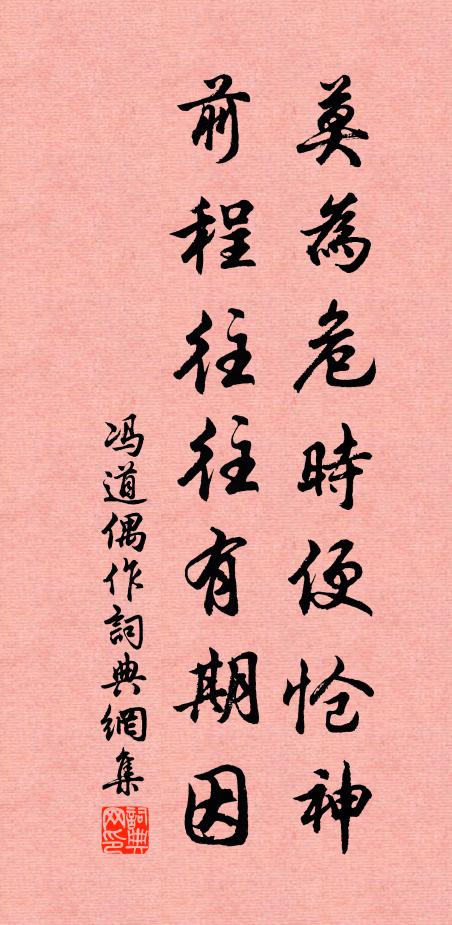 莫為危時便怆神
前程往往有期因
冯道偶作詞典網集
詞典网印